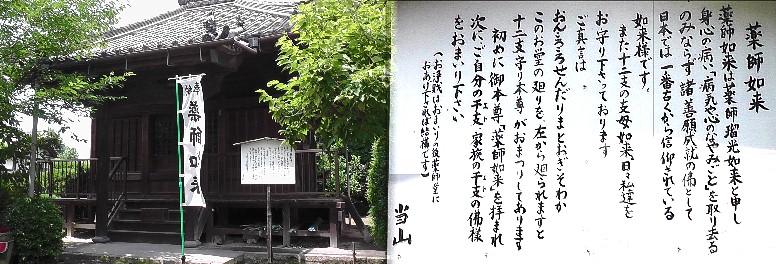 奉納
薬師如来
薬師如来
薬師如来は薬師瑠光如来と申し
身心の病・病気心のなやみごとを取り去る
のみならず諸善願成就の佛として
日本では一番古くから信仰されている
如来様です。
また十二支の支母如来、日々私達を
お守り下さっております
ご真言は
おんころころせんだりまとおぎそわか
このお堂の廻りを、左から廻られますと
十二支守り本尊がおまつりしてあります
初めに御本尊「薬師如来」を拝まれ
次にご自分の干支、家族の干支の佛様
をおまいり下さい
(お浄銭はおまいりの後薬師堂に
おあげ下されば結構です)
当山